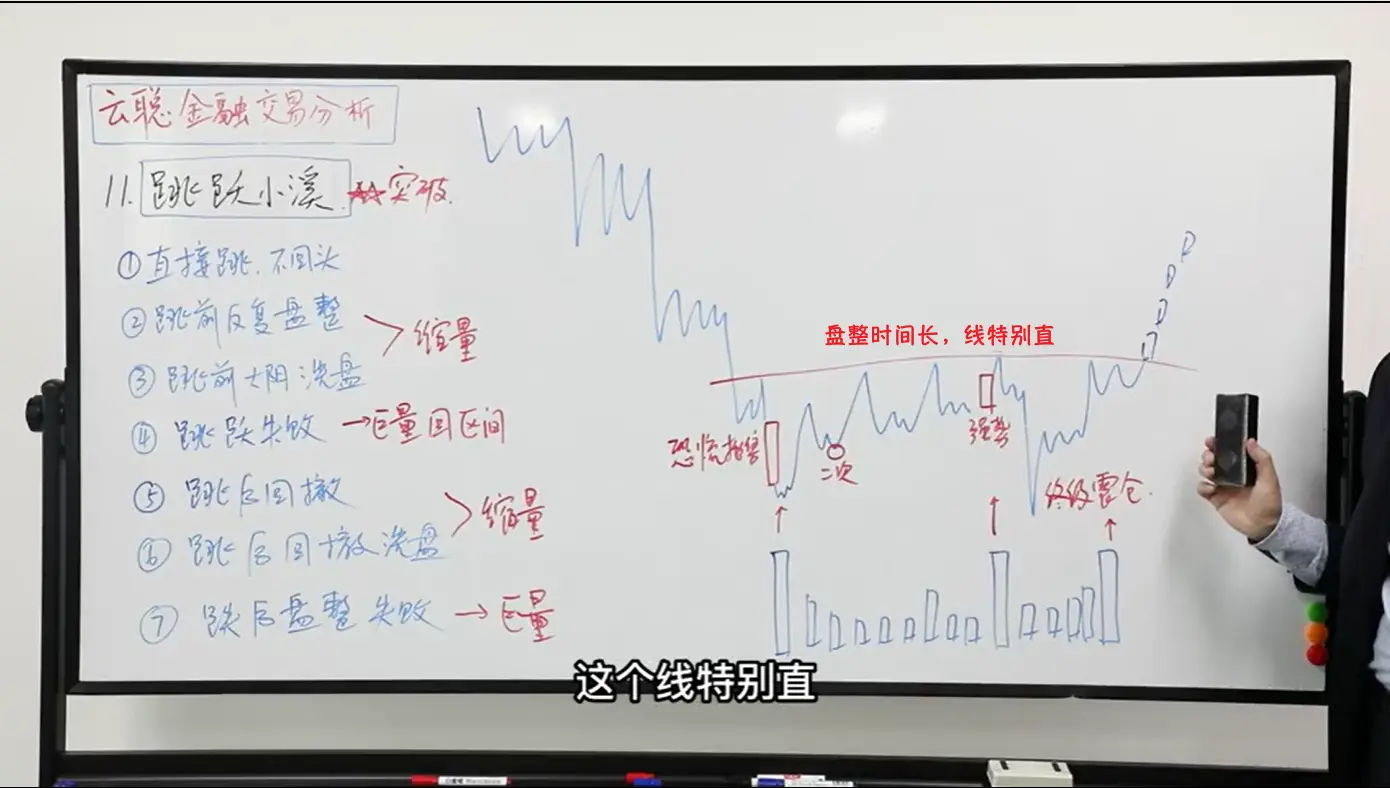 云聪金融交易分析
11. 跳跃小溪 突破.
①直接跳.不回头
②跳前反复盘整
③跳前大阴洗盘
缩量
④跳跃失败→巨量回区间
⑤跳后回撤
⑥跳后回撤洗盘
缩量
⑦跌后盘整失败→巨量
盘整时间长，线特别直
恐慌抛售
二次
强势
终级震仓.
这个线特别直